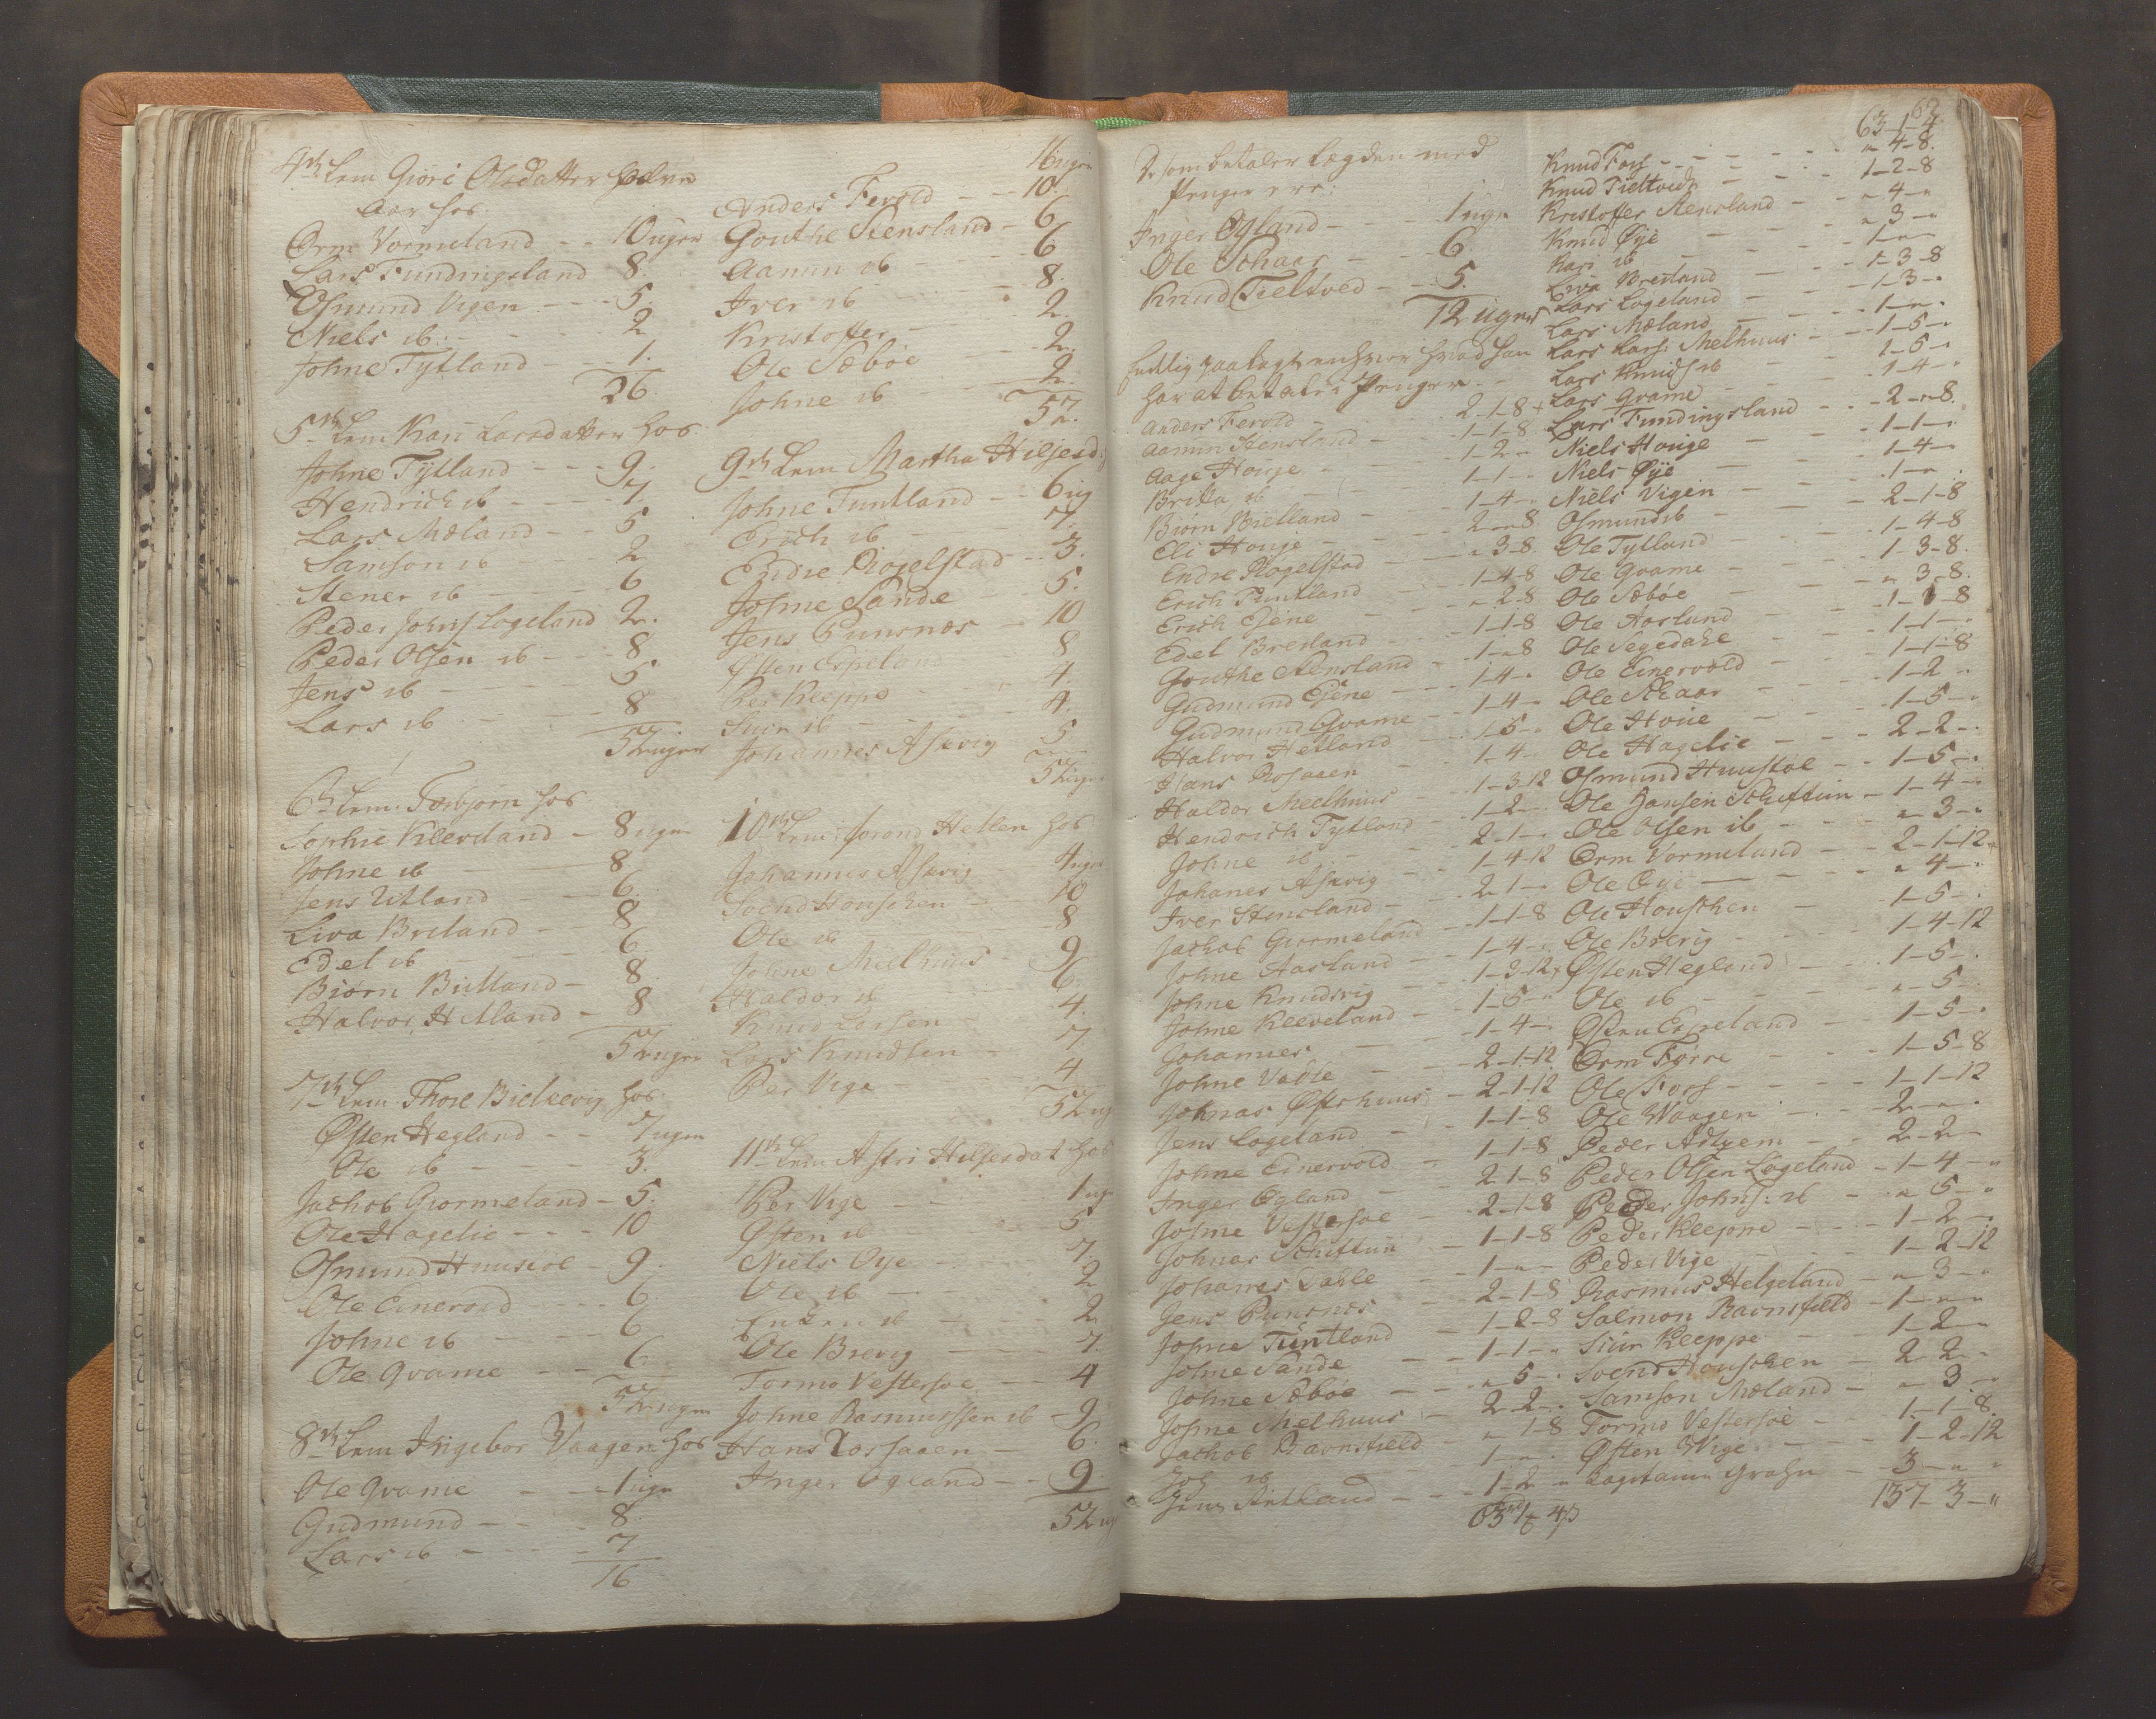 4de Lem Giøri Olsdatter halve
Aar hos
Orm Vormeland 10 uger
Lars Fundingsland 8.
Osmund Vigen 5.
Niels ib. 2
Johne Tytland 1.
26.
5te Lem Kari Larsdatter hos
Johne Tytland 9.
Hendrich ib 7.
Lars Mæland 5
Samson ib 2
Stener ib 6
Peder Johns. Logeland 2.
Peder Olsen ib 8
Jens ib 5
Lars ib 8
52 uger
6te Lem. Torbjørn hos
Sophie Kleeveland 8 uger
Johne ib 8
Jens Utland 6.
Liva Breland 8
Edel ib 6.
Biørn Bielland 8.
Halvor Hetland 8
52 uger
7de Lem Thore Bielkevig hos
Østen Hegland 7 uger
Ole ib 3.
Jachob Giormeland 5.
Ole Hagelie 10
Osmund Huustøl 9.
Ole Einervold 6.
Johne ib 6
Ole Qvame 6.
52 uger
8de Lem Ingebor Vaagen hos
Ole Qvame 1 uge
Gudmund 8.
Lars ib 7
16
16 uger
Anders Ferold 10.
Gouthe Stensland 6
Aamun ib 6.
Iver ib 8.
Kristoffer 2.
Ole Sæbøe 2.
Johne ib 2.
52.
9de Lem Martha Hiljesd:
Johne Tuntland 6 ug
Erich ib 7.
Endre Rogelstad 3.
Johne Sande 5.
Jens Punsnes 10
Østen Espeland 8
Per Kleppe 4.
Siur ib 4.
Johannes Asevig 5
52 uger
10de Lem: Jorond Hellen hos
Johannes Asevig 4 uger
Svend Houschen 10
Ole ib 8
Johne Meelhuus 9
Haldor ib 6.
Knud Larsen 4.
Lars Knudsen 7.
Per Vige 4
52 ug
11te Lem Astri Hiljesdat hos
Per Vige 1 ug
Østen ib 5
Niels Øye 7.
Ole ib 2
Enken ib 2
Ole Brevig 7.
Tormo Vestersøe 4
Johne Rasmussen ib 9
Hans Rossaaen 6.
Inger Egland 9
52 ug
62
De som betaler Lægden med
Penger ere:
Inger Øgland 1 uge
Ole Schaar 6.
Knud Tieltved 5.
12 uger
Endelig paalagt enhver hvad han
har at betale i Penger.
Anders Ferold 2-1-8+
Aamun Stensland 1-1-8
Aage Houge 1-2-"
Britta ib 1-1-"
Biørn Bielland 1-4-"
Eli Houge 2-"-8
Endre Rogelstad "-3-8
Erich Tuntland 1-4-8
Erich Eiene "-2-8
Edel Breiland 1-1-8
Gouthe Stensland 1-"-8
Gudmund Eiene 1-4-"
Gudmund Qvame 1-4-"
Halvor Hetland 1-5-"
Hans Rossaaen 1-4-"
Haldor Meelhuus 1-3-12
Hendrich Tytland 1-2-"
Johne ib 2-1-"
Johanes Asevig 1-4-12
Iver Stensland 2-1-"
Jachob Giormeland 1-1-8
Johne Aasland 1-4-"
Johne Knudsvig 1-3-12+
Johne Kleeveland 1-5-"
Johannes 1-4-"
Johne Vadle 2-1-12
Johnas Østehuus 2-1-12
Jens Logeland 1-1-8
Johne Einervold 1-1-8
Inger Egland 2-1-8
Johne Vestersøe 2-1-8
Johnas Schiftun 1-1-8
Johanes Dahle 1-"-"
Jens Punsnes 2-1-8
Johne Tuntland 1-2-8
Johne Sande 1-1-"
Johne Sæbøe "-5-"
Johne Melhuus 2-2-"
Jachob Ravnsfield "-1-8
ib 1-"-"
Jens Utland 1-2-"
63 1 4
63-1-4
Knud Foss "-4-8.
Knud Tieltved 1-2-8
Kristoffer Stensland "-4-"
Knud Øye "-3-"
Kari ib 1-"-"
Liva Breiland 1-3-8
Lars Logeland 1-3-"
Lars Mæland 1-"-"
Lars Lars: Melhuus 1-5-"
Lars Knuds ib 1-5-"
Lars Qvame 1-4-"
Lars Fundingsland 2-"-8.
Niels Houge 1-1-"
Niels Øye 1-4-"
Niels Vigen 1-"-"
Osmund ib 2-1-8
Ole Tytland 1-4-8
Ole Qvame 1-3-8.
Ole Sæbøe "-3-8.
Ole Aasland 1-1-8
Ole Segedahl 1-1-"
Ole Einervold 1-1-8
Ole Schaar 1-2-"
Ole Houe 1-5-"
Ole Hagelie 2-2-"
Osmund Huustøl 1-5-"
Ole Hansen Schiftun 1-4-"
Ole Olsen ib "-3-"
Orm Vormeland 2-1-12
Ole Øye "-4-"
Ole Houschen 1-5-"
Ole Brevig 1-4-12
Østen Hegland 1-5-"
Ole ib "-5-"
Østen Espeland 1-5-"
Orm Førre 1-5-8
Ole Foss 1-1-12
Ole Waagen 2-"-"
Peder Ashjem 2-2-"
Peder Olsen Logeland 1-4-"
Peder Johns: ib "-5-"
Peder Kleppe 1-2-"
Peder Vige 1-2-12
Rasmus Helgeland "-3-"
Salmon Ravnsfield 1-"-"
Siur Kleppe 1-2-"
Svend Houschen 2-2-"
Samson Mæland "-3-"
Tormo Vestersøe 1-1-8.
Østen Wige 1-2-12
Capitain Grahn 3-"-"
137-3-"